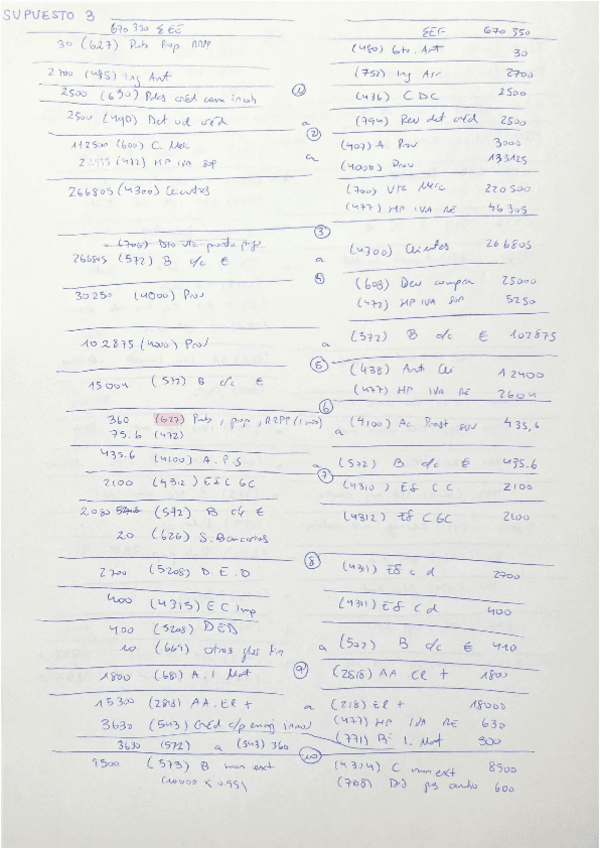 SUPUESTO 3
670 350 ΣEE ΣEF 670 350
30 (627) Pub Prop RRPP (480) Gto. Ant 30
2700 (485) Ing Ant (752) Ing Arr 2700
2500 (650) Pdas créd com incob ① (436) C D C 2500
2500 (490) Det val créd a (794) Rev det créd 2500
②
112500 (600) C. Merc (407) A. Prov 3000
(472) HP IVA SOP a (4000) Prov 133125
266805 (4300) Clientes (700) Vta Merc 220500
(477) HP IVA RE 46305
③
(706) Dto vta pronto pago
266805 (572) B c/c € a (4300) Clientes 266805
30250 (4000) Prov (608) Dev compra 25000
(472) HP IVA SOP 5250
102875 (4000) Prov a (572) B c/c € 102875
⑤
15004 (572) B c/c € (438) Ant Cli 12400
(477) HP IVA RE 2604
⑥
360 (627) Pub, prop, RRPP a (4100) Ac Prest serv 435,6
75.6 (472)
435.6 (4100) A.P.S a (572) B c/c € 435.6
⑦
2100 (4312) Ef C GC (4310) Ef C C 2100
2080 (572) B c/c € (4312) Ef C GC 2100
20 (626) S. Bancarios
⑧
2700 (5208) D.E.D (4311) Ef c d 2700
400 (4315) E C Imp (4311) Ef C d 400
400 (5208) DED
10 (669) otros gtos fin a (572) B c/c € 410
⑨
1800 (681) A. I. Mat (2818) AA. El T 1800
15300 (2818) AA. El T a (218) El T 18000
3630 (543) Créd c/p enaj inmov (477) HP IVA RE 630
(771) Bº I. Mat 900
3630 (572) a (543) 360
⑩
9500 (573) B mon ext (4304) C mon ext 8900
(10000 x 0.95) (768) Dif pos cambio 600